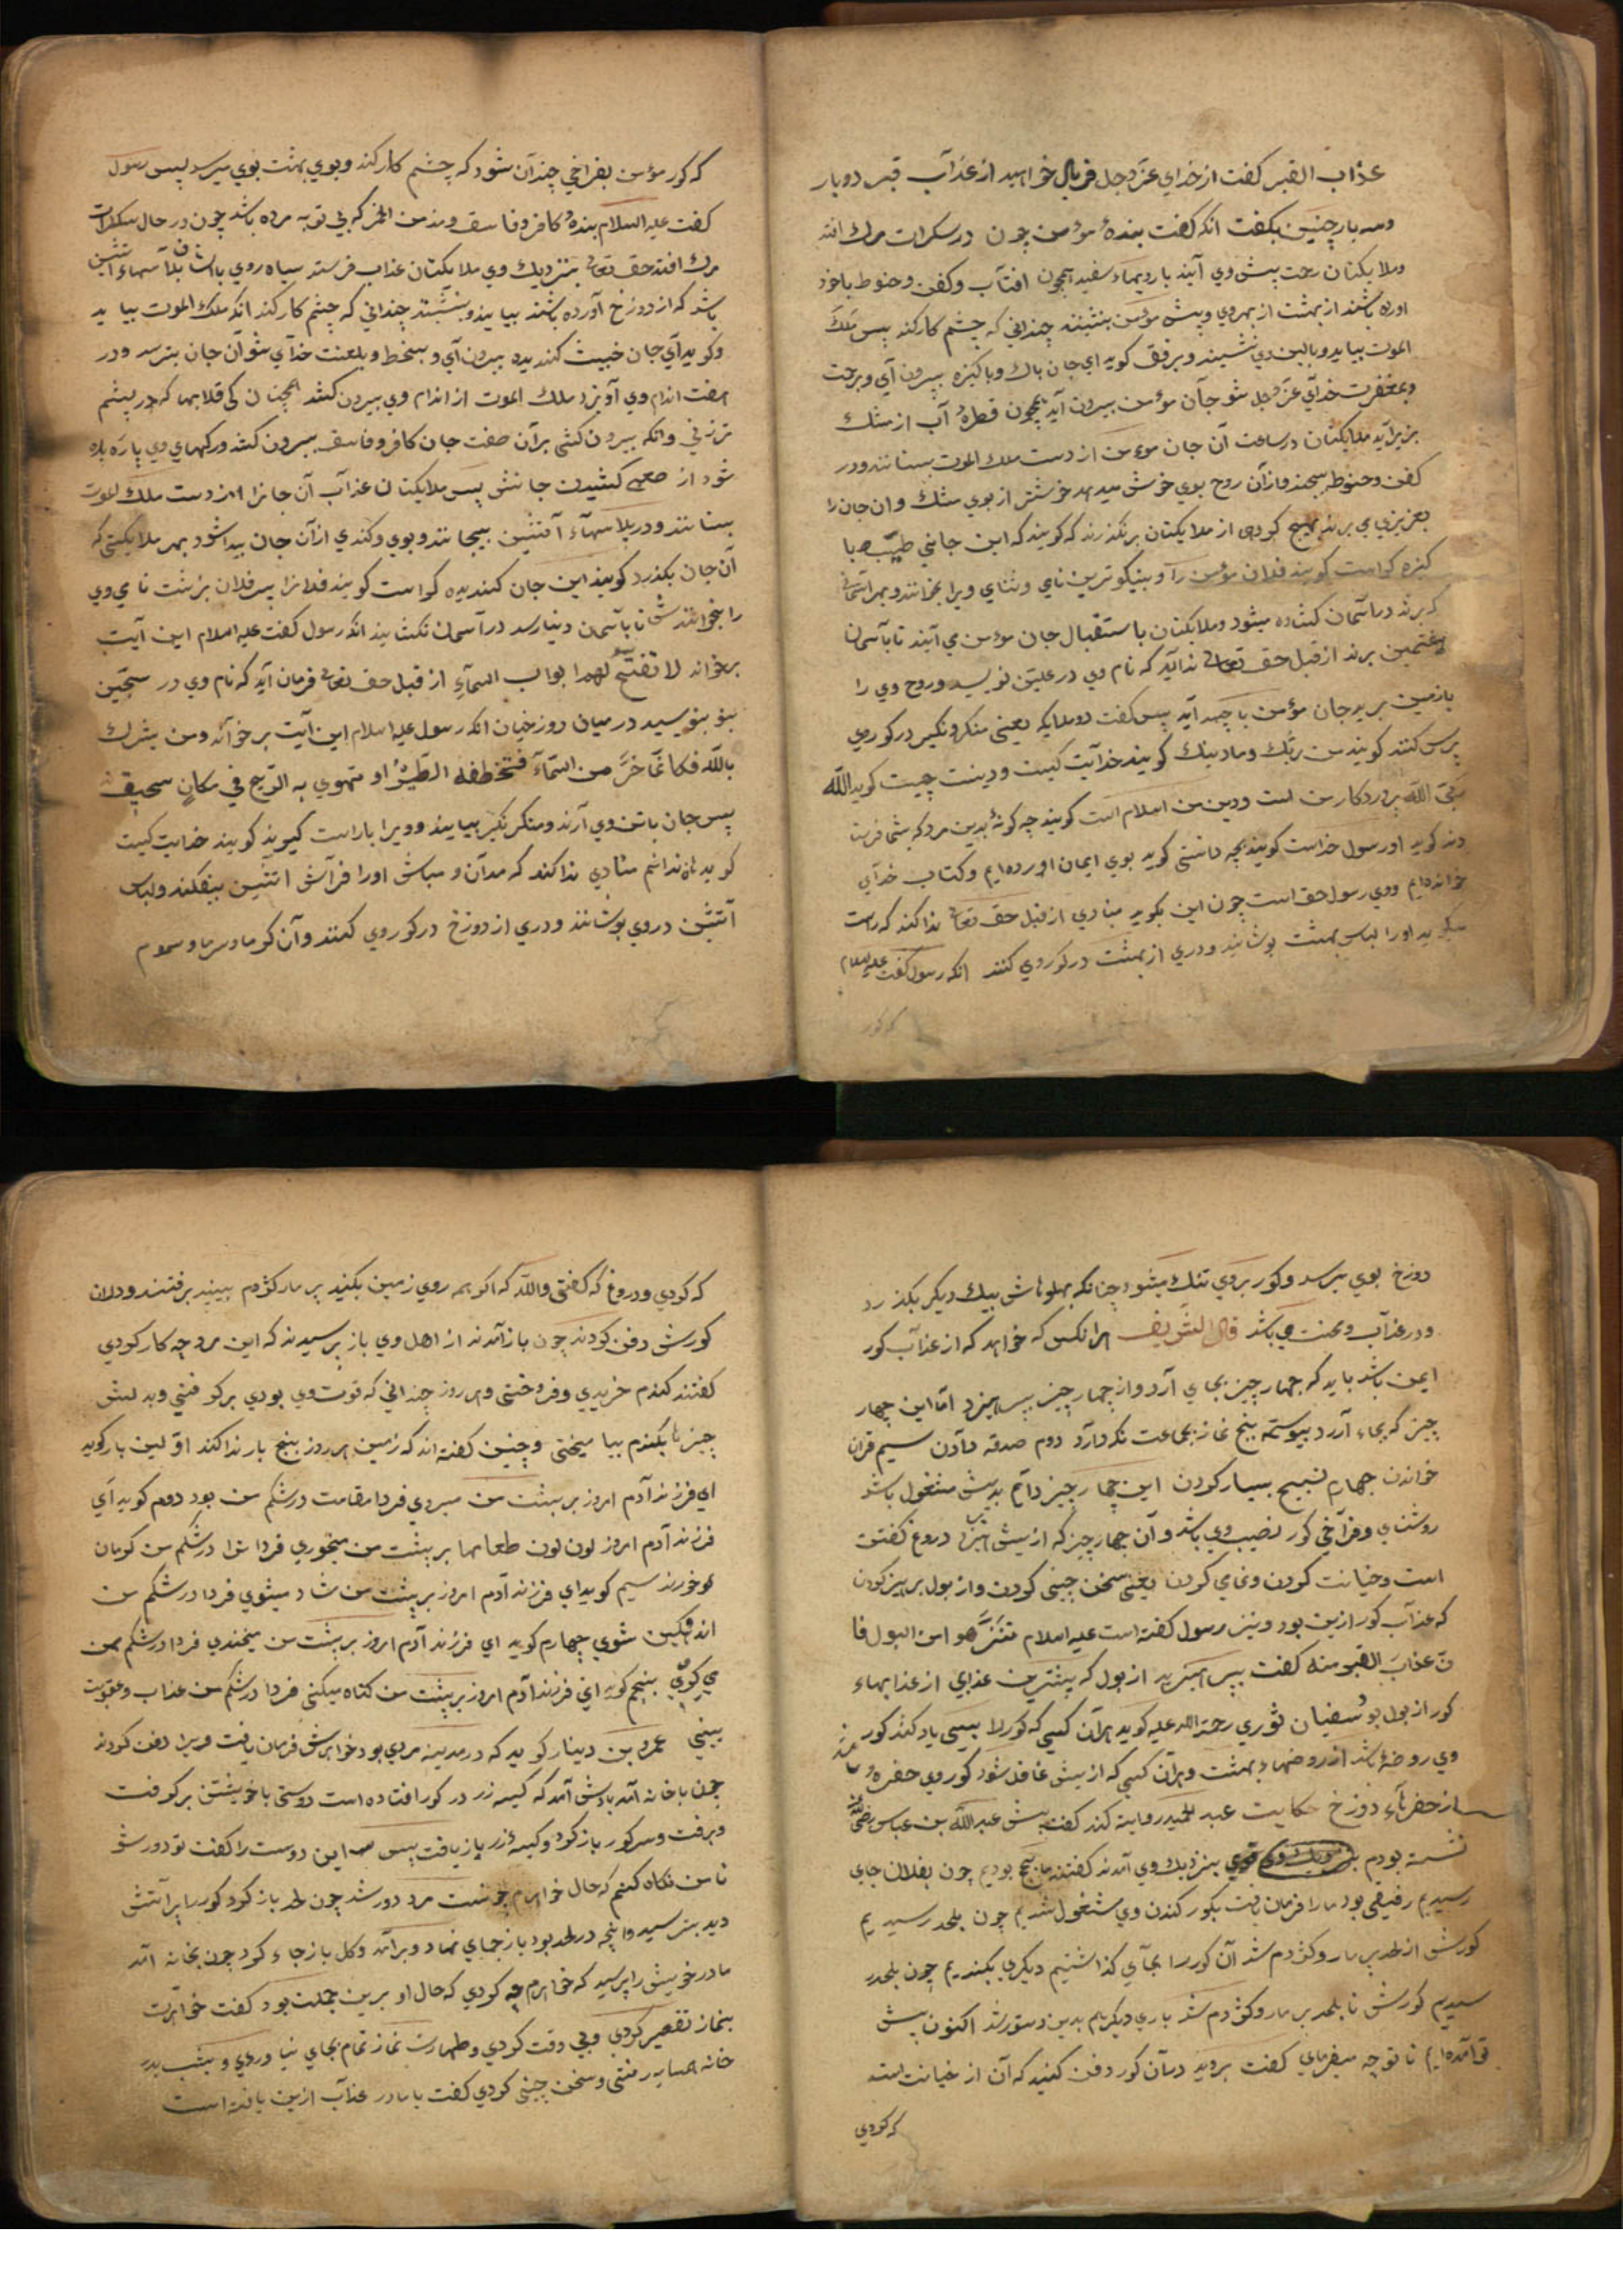 عذاب القبر کفت از خدای عزوجل فریاد خواهید از عذآب قبر دو بار
وسه بار چنین بکفت انکه کفت بندهٔ مؤمن چون در سکرات مرك افتد
وملایکتان رحمت پیش وی آیند با رویهاء سفید همچون افتآب وکفن وحنوط با خود
اورده باشند از بهشت از بهر وی وپیش مؤمن بنشینند چندانی که چشم کار کند پس ملك
الموت بیاید وبالین وی نشیند وبرفق کوید ای جان پاك وپاکیزه بیرون آی وبرحمت
وبمغفرت خدآی عزوجل شو جآن مؤمن بیرون آید همچون قطرهٔ آب از مشك
بزیر آید ملایکتان در ساعت آن جان مؤمن از دست ملك الموت بستانند ودر
کفن وحنوط پیچند واز آن روح بوی خوش میدمد خوشتر از بوی مشك وان جان را
بعزیزی می برند بهیچ کروهی از ملایکتان برنکذرند که کویند که این جانی طیب وبا
کیزه کراست کویند فلان مؤمن را وبنیکوترین نامی وثنای ویرا بخوانند وبهر آسمانی
که برند در آسمان کشاده میشود وملایکتان باستقبال جان مؤمن می آیند تا بآسمان
هفتمین برند از قبل حق تعالی ندا آید که نام وی در علیین نویسید وروح وی را
بازمین برید جان مؤمن با جسد آید پس کفت دو ملایکه یعنی منکر ونکیر در کور وی
پرس کنند کویند من ربك وما دینك کویند خدآیت کیست ودینت چیست کوید الله
ربی الله پروردکار من است ودین من اسلام است کویند چه کوئی بدین مرد که بشما فرستا
دند کوید او رسول خداست کویند بچه دانستی کوید بوی ایمان اورده ایم وکتاب خدآی
خوانده ایم ووی رسول حق است چون این بکوید منادی از قبل حق تعالی ندا کند که راست
میکوید اورا لباس بهشت پوشانید ودری از بهشت در کور وی کنند انکه رسول کفت علیه السلام
که کور
که کور مؤمن بفراخی چندآن شود که چشم کار کند وبوی بهشت بوی میرسد پس رسول
کفت علیه السلام بندهٔ کافر وفاسق ومدمن الخمر که بی توبه مرده باشد چون در حال سکرات
مرك افتد حق تعالی بنزدیك وی ملایکتان عذاب فرستد سیاه روی با ایشان پلآسهاء آتشین
باشد که از دوزخ آورده باشند بیایند وبنشینند چندانی که چشم کار کند انکه ملك الموت بیاید
وکوید ای جان خبیث کندیده بیرون آی وبسخط وبلعنت خدآی شو آن جان بترسد ودر
هفت اندام وی آویزد ملك الموت از اندام وی بیرون کشد همچنان کی قلابها که در پشم
تر زنی وانکه بیرون کشی برآن صفت جان کافر وفاسق بیرون کشد ورکهای وی پاره پاره
شود از صعبی کشیدن جانش پس ملایکتان عذآب آن جانرا از دست ملك الموت
بستانند ودر پلاسهآء آتشین پیچانند وبوی وکندی ازآن جان پیدا شود وبهر ملایکتی که
آن جان بکذرد کویند این جان کندیده کراست کویند فلانرا پسر فلان بزشت نامی وی
را بخوانندش تا بآسمان دنیا رسد در آسمان نکشایند انکه رسول کفت علیه السلام این آیت
بر خواند لا تفتح لهم ابواب السمآء از قبل حق تعالی فرمان آید که نام وی در سجین
بنویسید در میان دوزخیان انکه رسول علیه السلام این آیت بر خوآند ومن یشرك
بالله فکانما خر من السمآء فتخطفه الطیر او تهوی به الریح فی مکان سحیق
پس جان باتن وی آرند ومنکر نکیر بیایند وویرا باراست کیرند کویند خدایت کیست
کوید هاه ندانم منادی ندا کند که مدآن ومباش اورا فرآش اتشین بیفکنند ولباس
آتشین در وی پوشانند ودری از دوزخ در کور وی کنند وآن کرما وسرما وسموم
دوزخ بوی میرسد وکور بر وی تنك میشود چنانکه پهلوهاش بیك دیکر بکذرد
ودر عذآب ومحنت می باشد قال الشریف هرانکس که خواهد که از عذآب کور
ایمن باشد باید که چهار چیز بجای آرد واز چهار چیز بپرهیزد اما این چهار
چیز که بجاء آرد پیوسته پنج نماز بجماعت نکه دارد دوم صدقه دآدن سیم قرآن
خواندن چهارم تسبیح بسیار کردن این چهار چیز دآیم بدیش مشغول باشد
روشنای وفرآخی کور نصیب وی باشد وآن چهار چیز که ازیش پرهیزد دروغ کفتن
است وخیانت کردن ونمامی کردن یعنی سخن چینی کردن واز بول پرهیز کردن
که عذآب کور ازین بود ونیز رسول کفته است علیه السلام تنزهوا من البول فا
ن عذاب القبر منه کفت بپرهیزید از بول که بیشترین عذابی از عذابهاء
کور از بول بود سفیان ثوری رحمة الله علیه کوید هرآن کسی که کور را بسی یاد کند کور
وی روضهٔ باشد از روضهاء بهشت وهرآن کسی که ازیش غافل شود کور وی حفرهٔ باشد
از حفرهآء دوزخ حکایت عبد الحمید روایة کند کفت پیش عبد الله بن عباس رضی الله عنه
نشسته بودم قومی بنزدیك وی آمدند کفتند ما بحج بودیم چون بفلان جای
رسیدیم رفیقی بود مارا فرمان یافت بکور کندن وی مشغول شدیم چون بلحد رسیدیم
کورش از لحد پر مار وکژدم شد آن کور را بجآی کذاشتیم دیکری بکندیم چون بلحد ر
سیدیم کورش تا بلحد پر مار وکژدم شد باری دیکر هم بدین دستور شد اکنون پیش
تو آمده ایم تا تو چه میفرمای کفت بروید درآن کور دفن کنید که آن از خیانت است
که کردی
که کردی ودروغ که کفتی والله که اکر همه روی زمین بکنید پر مار کژدم ببینید برفتند ودرآن
کورش دفن کردند چون باز آمدند از اهل وی باز پرسیدند که این مرد چه کار کردی
کفتند کندم خریدی وفروختی وهر روز چندانی که قوت وی بودی برکرفتی وبدلش
چیزها بکندم بیامیختی وچنین کفته اند که زمین هر روز پنج بار ندا کند اولین بار کوید
ای فرزند آدم امروز بر پشت من میروی فردا مقامت در شکم من بود دوم کوید آی
فرزند آدم امروز لون لون طعامها بر پشت من میخوری فردا ترا در شکم من کرمان
خورند سیم کوید ای فرزند آدم امروز بر پشت من شاد میشوی فردا در شکم من
اندهکین شوی چهارم کوید ای فرزند آدم امروز بر پشت من میخندی فردا در شکم من
می کریی پنجم کوید ای فرزند آدم امروز بر پشت من کناه میکنی فردا در شکم من عذاب وعقوبت
بینی عمرو بن دینار کوید که در مدینه مردی بود خواهرش فرمان یافت ویرا دفن کردند
چون با خانه آمد یادش آمد که کیسه زر در کور افتاده است دوستی با خویشتن برکرفت
وبرفت وسر کور باز کرد وکیسهٔ زر باز یافت پس این دوست را کفت تو دور شو
تا من نکاه کنم که حال خواهرم چونست مرد دور شد چون لحد باز کرد کور را پر آتش
دید بترسید وانچه در لحد بود باز جای نهاد وبر آمد وکل باز جاء کرد چون بخانه آمد
مادر خویش را پرسید که خواهرم چه کردی که حال او برین جملت بود کفت خواهرت
بنماز تقصیر کردی وبی وقت کردی وطهارت نماز تمام بجای نیاوردی وبشب بدر
خانه همسایه رفتی وسخن چینی کردی کفت یا مادر عذآب ازین یافته است